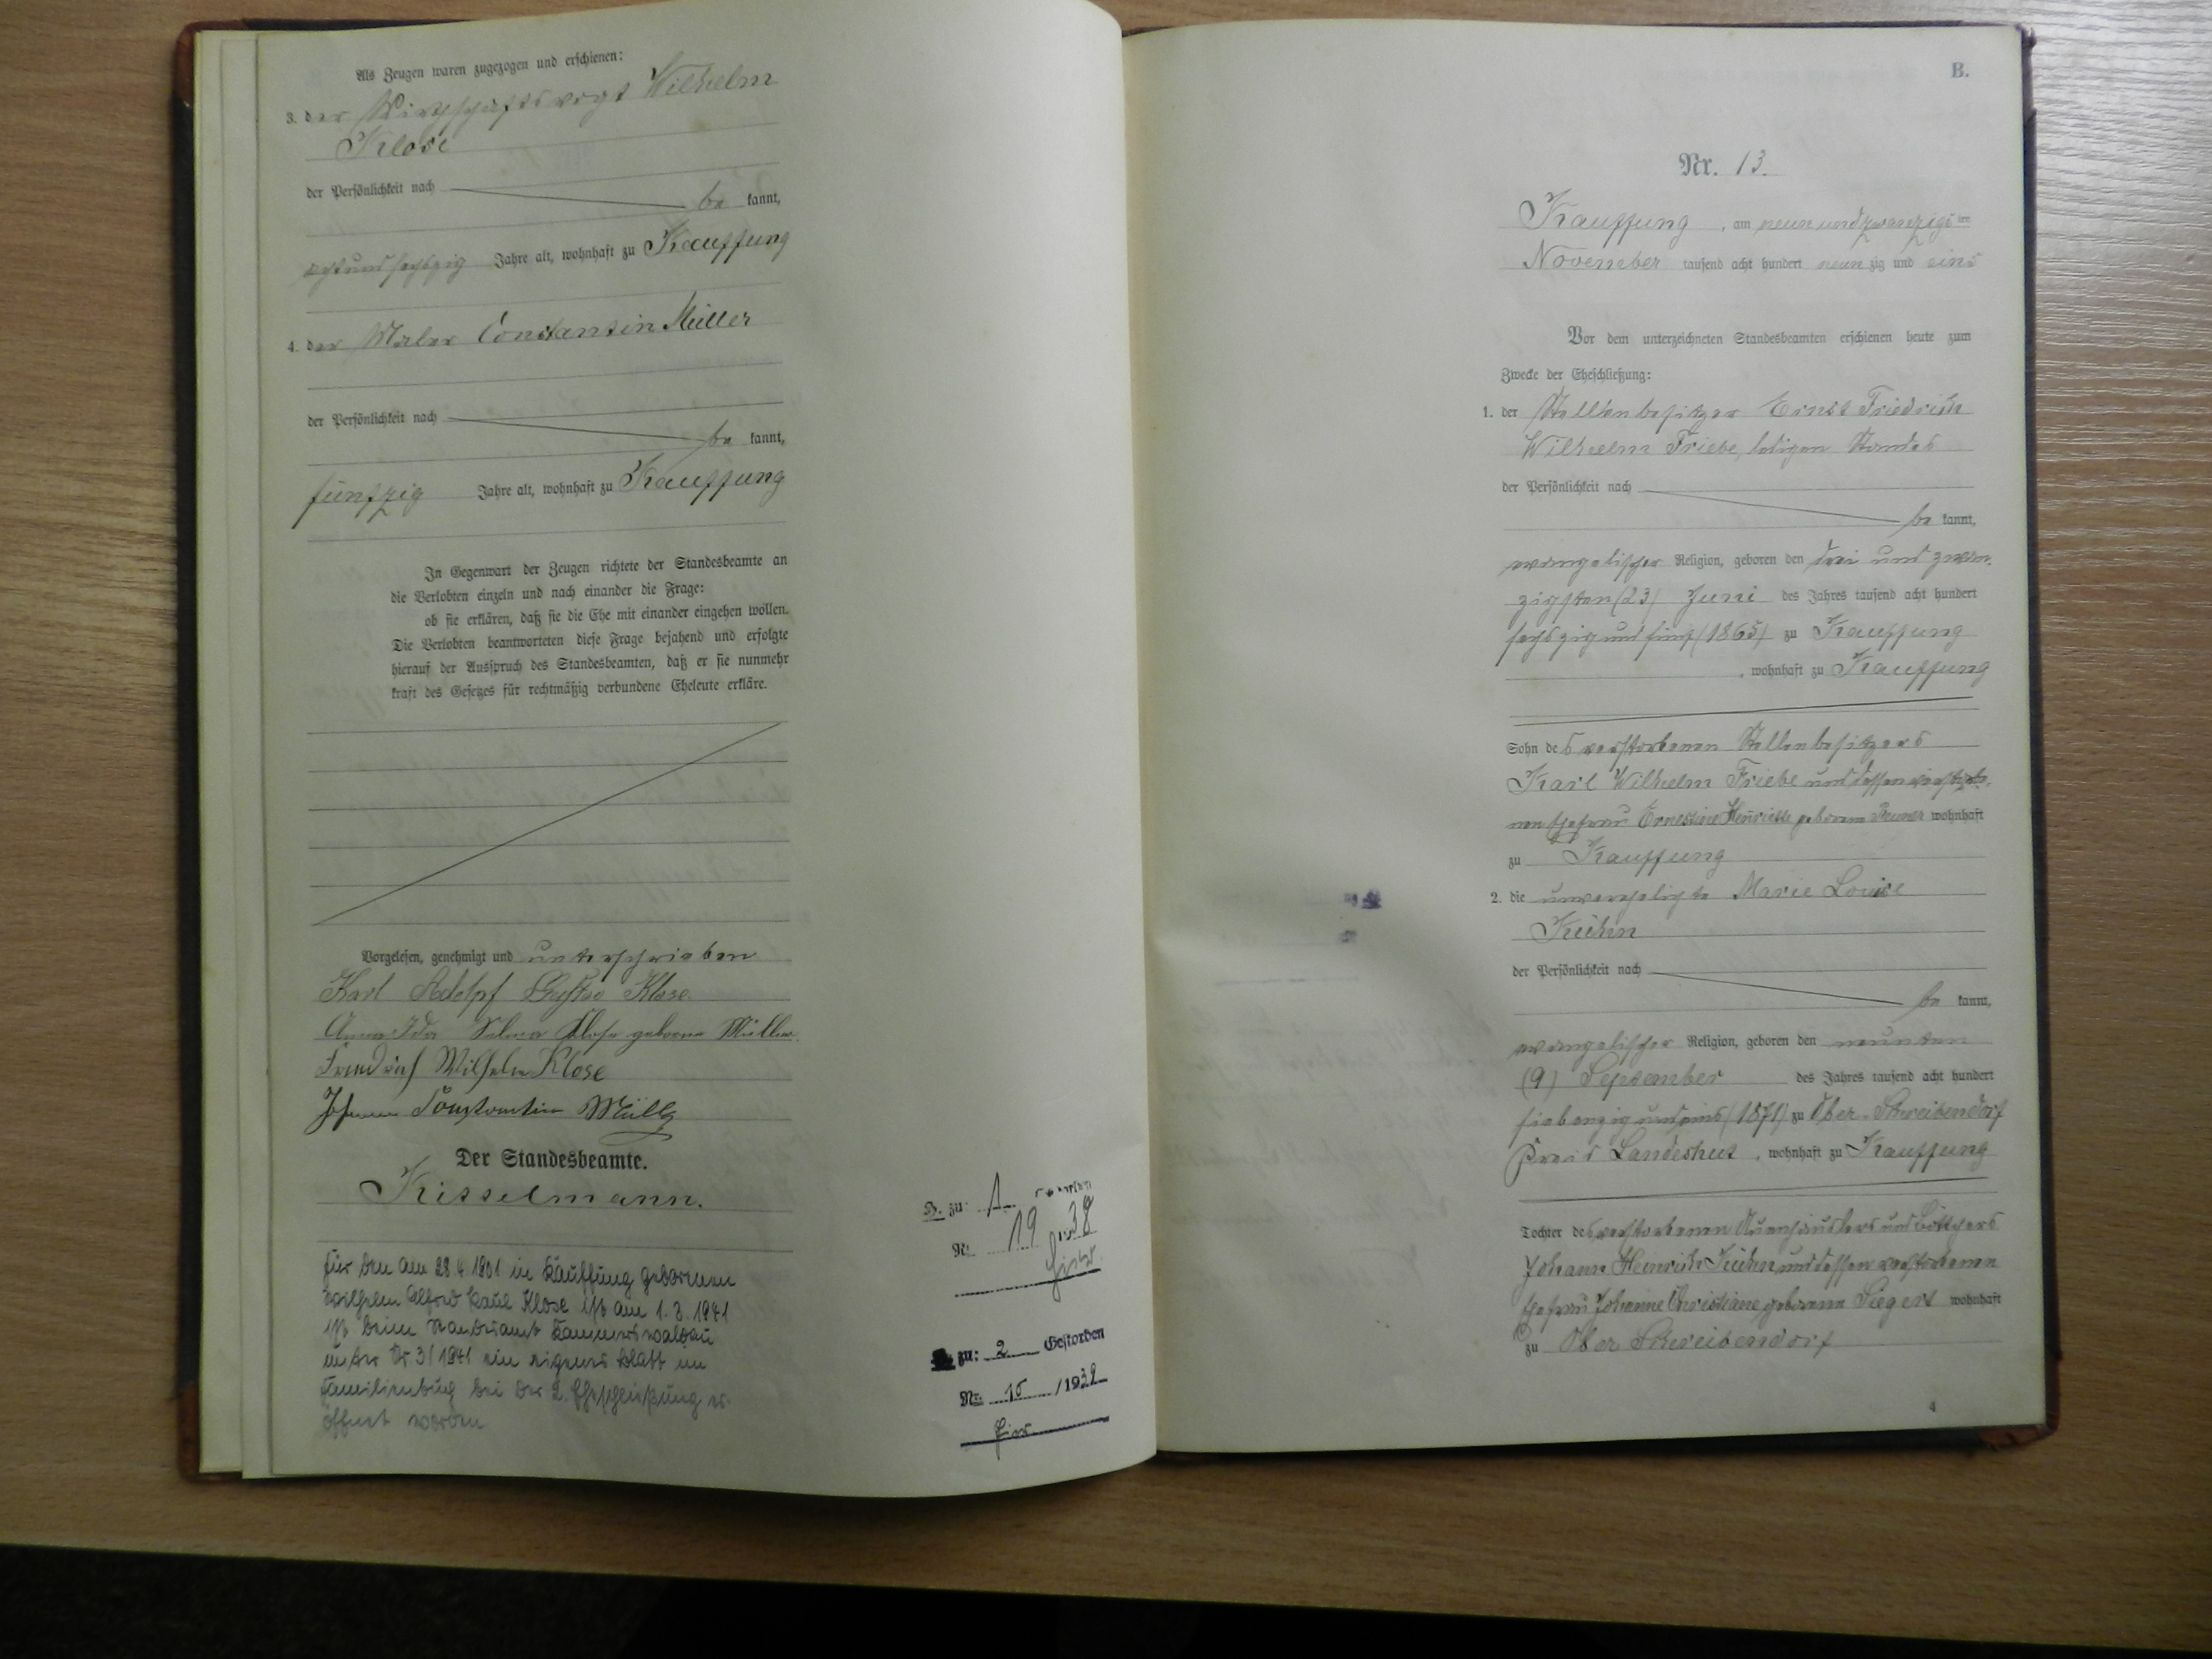 Als Zeugen waren zugezogen und erschienen:
3. der Wirthschaftsvogt Wilhelm
Klose
der Persönlichkeit nach
be kannt,
achtundsechszig Jahre alt, wohnhaft zu Kauffung
4. der Maler Constantin Müller
der Persönlichkeit nach
be kannt,
fünfzig Jahre alt, wohnhaft zu Kauffung
In Gegenwart der Zeugen richtete der Standesbeamte an
die Verlobten einzeln und nach einander die Frage:
ob sie erklären, daß sie die Ehe mit einander eingehen wollen.
Die Verlobten beantworteten diese Frage bejahend und erfolgte
hierauf der Ausspruch des Standesbeamten, daß er sie nunmehr
kraft des Gesetzes für rechtmäßig verbundene Eheleute erkläre.
Vorgelesen, genehmigt und unterschrieben
Karl Adolf Gustav Klose
Anna Ida Selma Klose geborene Müller.
Friedrich Wilhelm Klose
Johann Constantin Müller
Der Standesbeamte.
Kisselmann.
für den am 28.4.1901 in Kauffung geborenen
Wilhelm Alfred Paul Klose ist am 1.3.1941
ist beim Standesamt Kammerswaldau
unter Nr 3/1941 ein eigenes Blatt im
Familienbuch bei der 2. Eheschließung er-
öffnet worden
zu: 1.
Nr. 19 1938
zu: 2 Gestorben
Nr. /193
B.
Nr. 13.
Kauffung, am neunundzwanzigsten
November tausend acht hundert neunzig und eins
Vor dem unterzeichneten Standesbeamten erschienen heute zum
Zwecke der Eheschließung:
1. der Stellenbesitzer Ernst Friedrich
Wilhelm Friebe, ledigen Standes
der Persönlichkeit nach
be kannt,
evangelischer Religion, geboren den drei und zwan-
zigsten (23) Juni des Jahres tausend acht hundert
sechszig und fünf (1865) zu Kauffung
, wohnhaft zu Kauffung
Sohn des verstorbenen Stellenbesitzers
Karl Wilhelm Friebe und dessen verstorbe-
nen Ehefrau Ernestine Henriette geborene wohnhaft
zu Kauffung
2. die unverehelichte Marie Louise
Kühn
der Persönlichkeit nach
be kannt,
evangelischer Religion, geboren den neunten
(9) September des Jahres tausend acht hundert
siebenzig und eins (1871) zu Ober-Schreibendorf
Kreis Landeshut, wohnhaft zu Kauffung
Tochter des verstorbenen Auenhäuslers und Böttchers
Johann Heinrich Kühn und dessen verstorbenen
Ehefrau Johanne Christiane geborene Siegert wohnhaft
zu Ober Schreibendorf
4